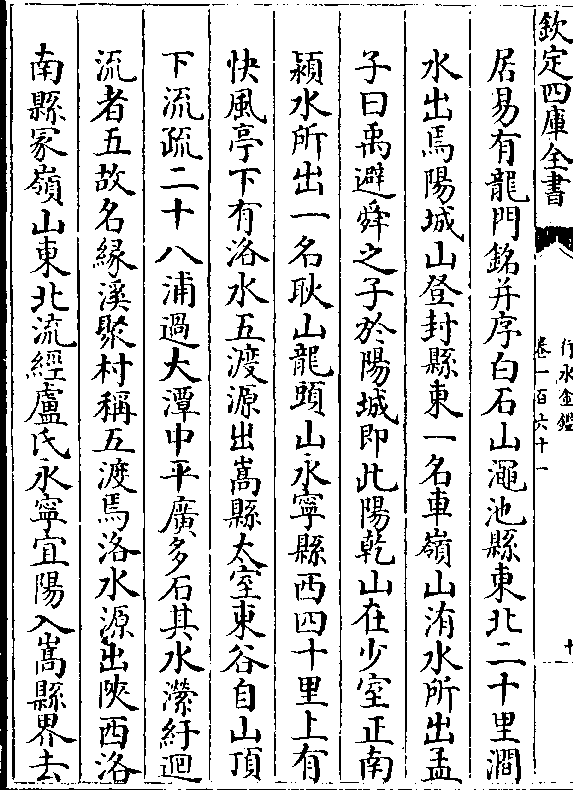 欽定四庫全書
行水金鑑
卷一百六十一
十
居易有龍門銘并序白石山澠池縣東北二十里澗
水出焉陽城山登封縣東一名車嶺山洧水所出孟
子曰禹避舜之子於陽城即此陽乾山在少室正南
潁水所出一名耿山龍頭山永寧縣西四十里上有
快風亭下有洛水五渡源出嵩縣太室東谷自山頂
下流疏二十八浦過大潭中平廣多石其水瀠紆迴
流者五故名緣溪聚村稱五渡焉洛水源出陜西洛
南縣冢嶺山東北流經盧氏永寧宜陽入嵩縣界去